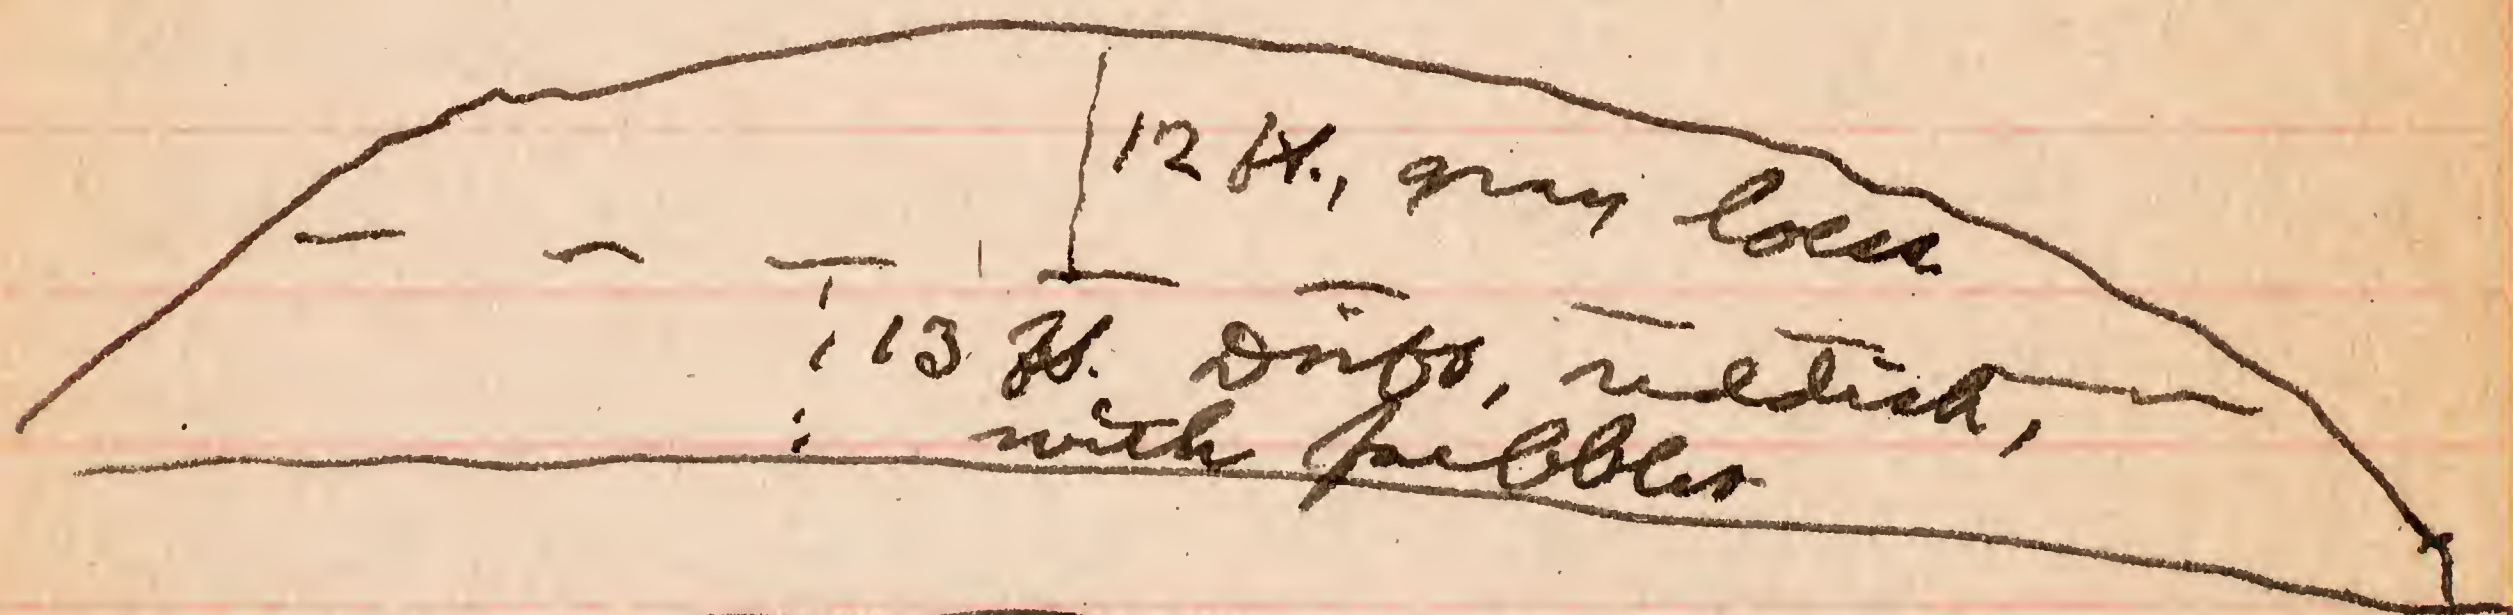 12 ft., gray loess
13 ft. Drift, reddish,
with pebbles